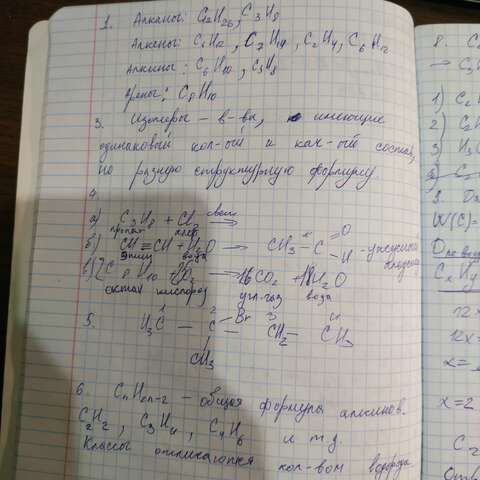 1. Алканы: C₁₂H₂₆, C₃H₈
Алкены: C₆H₁₂, C₇H₁₄, C₂H₄, C₆H₁₂
Алкины: C₆H₁₀, C₅H₈
Арены: C₈H₁₀
3. Изомеры – в-ва, имеющие
одинаковый кол-ый и кач-ый состав,
но разную структурную формулу.
4.
а) C₃H₈ + Cl₂ свет →
пропан хлор
б) CH≡CH + H₂O → CH₃ – C = O
H
Этин вода
в) C H + O₂ → 16CO₂ + 18H₂O
октан кислород угл.газ вода
5. H₃C – C – CH₂ – CH₃
1 2 Br 3 4
CH₃
6. CₙH₂ₙ₋₂ – общая формула алкинов.
C₂H₂, C₃H₄, C₄H₆ и т.д.
Классы отличаются кол-вом водорода
8.
→
1) C₂
2) C
3) H₃C
9. Да
W(C) =
12x
12x
x =
x = 2
C₂
Отв